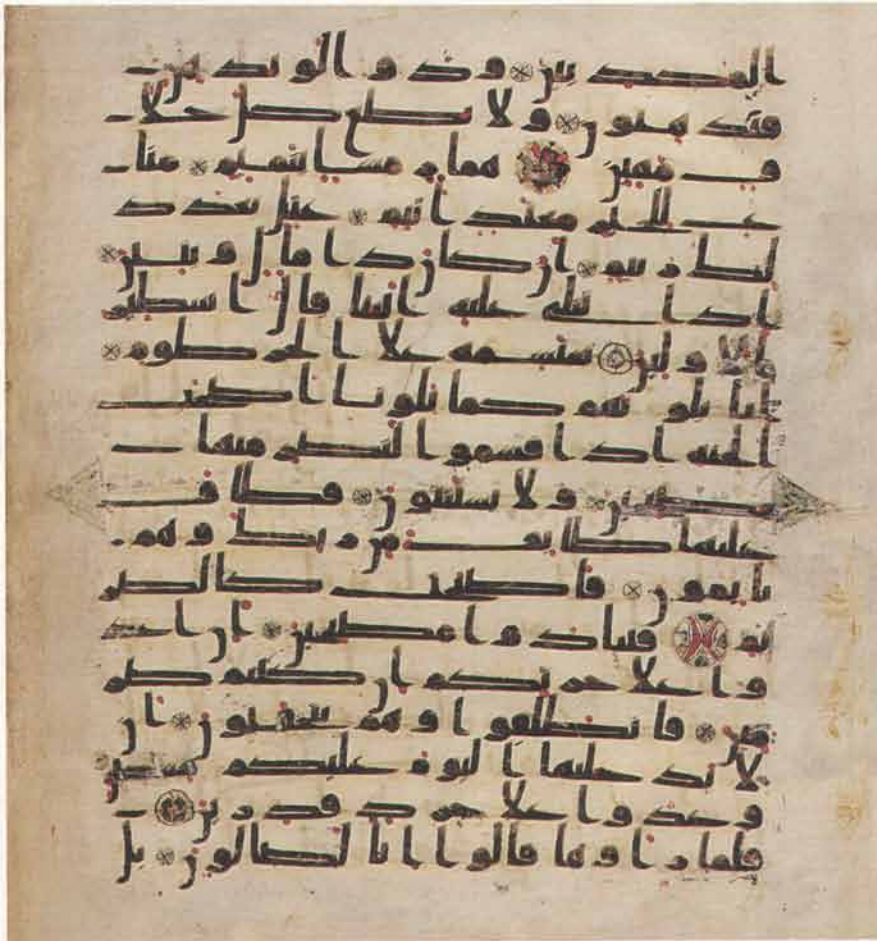 المكذبين ودوا لو تدهن
فيدهنون ولا تطع كل حلا
ف مهين هماز مشا بنميم منا
ع للخير معتد اثيم عتل بعد ذ
لك زنيم ان كان ذا مال وبنين
اذا تتلى عليه ايتنا قال اسطير
الاولين سنسمه علا الخرطوم
انا بلونهم كما بلونا اصحب
الجنه اذ اقسموا ليصرمنها
مصبحين ولا يستثنون فطاف
عليها طايف من ربك وهم
نايمون فاصبحت كالصر
يم فتنادوا مصبحين ان اغد
وا علا حرثكم ان كنتم صر
مين فانطلقوا وهم يتخفتون ان
لا يدخلنها اليوم عليكم مسكين
وغدوا علا حرد قدرين
فلما راوها قالوا انا لضالون بل